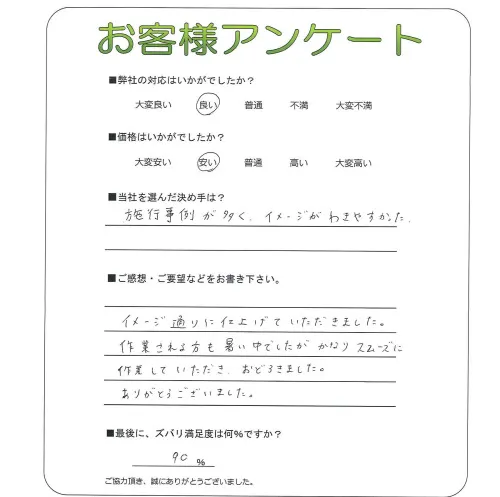 お客様アンケート
■弊社の対応はいかがでしたか？
大変良い 良い 普通 不満 大変不満
■価格はいかがでしたか？
大変安い 安い 普通 高い 大変高い
■当社を選んだ決め手は？
施行事例が多く、イメージがわきやすかった。
■ご感想・ご要望などをお書き下さい。
イメージ通りに仕上げていただきました。
作業される方も暑い中でしたがかなりスムーズに
作業していただき、おどろきました。
ありがとうございました。
■最後に、ズバリ満足度は何％ですか？
90 ％
ご協力頂き、誠にありがとうございました。